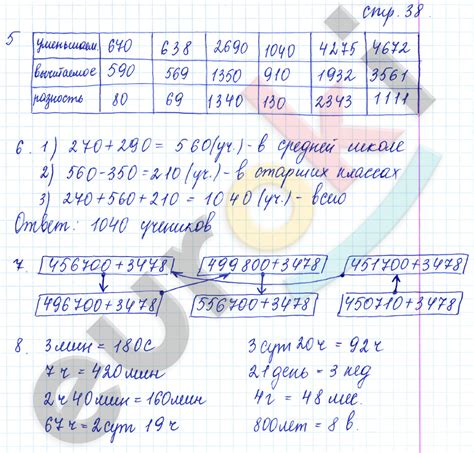 стр. 38.
5
уменьшаем. 670 638 2690 1040 4275 4672
вычитаемое 590 569 1350 910 1932 3561
разность 80 69 1340 130 2343 1111
6. 1) 270+290= 560(уч.)-в средней школе
2) 560-350=210(уч.)-в старших классах
3) 270+560+210=1040(уч.)-всего
Ответ: 1040 учеников
7. 456700+3478 499800+3478 451700+3478
496700+3478 556700+3478 450710+3478
8. 3мин = 180с 3сут 20ч = 92ч
7ч = 420мин 21день = 3 нед
2ч 40мин = 160мин 4г = 48 мес.
67ч = 2сут 19ч 800лет = 8 в.
euroki